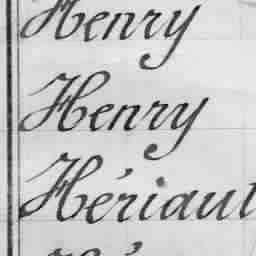 Henry
Henry
Hériaul